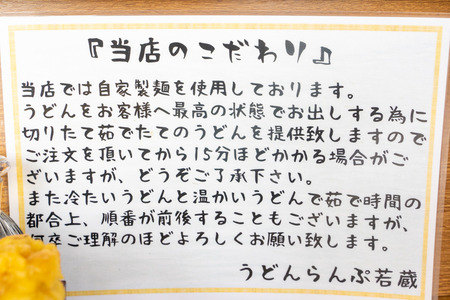 『当店のこだわり』
当店では自家製麺を使用しております。
うどんをお客様へ最高の状態でお出しする為に
切りたて茹でたてのうどんを提供致しますので
ご注文を頂いてから15分ほどかかる場合がご
ざいますが、どうぞご了承下さい。
また冷たいうどんと温かいうどんで茹で時間の
都合上、順番が前後することもございますが、
何卒ご理解のほどよろしくお願い致します。
うどんらんぷ若蔵